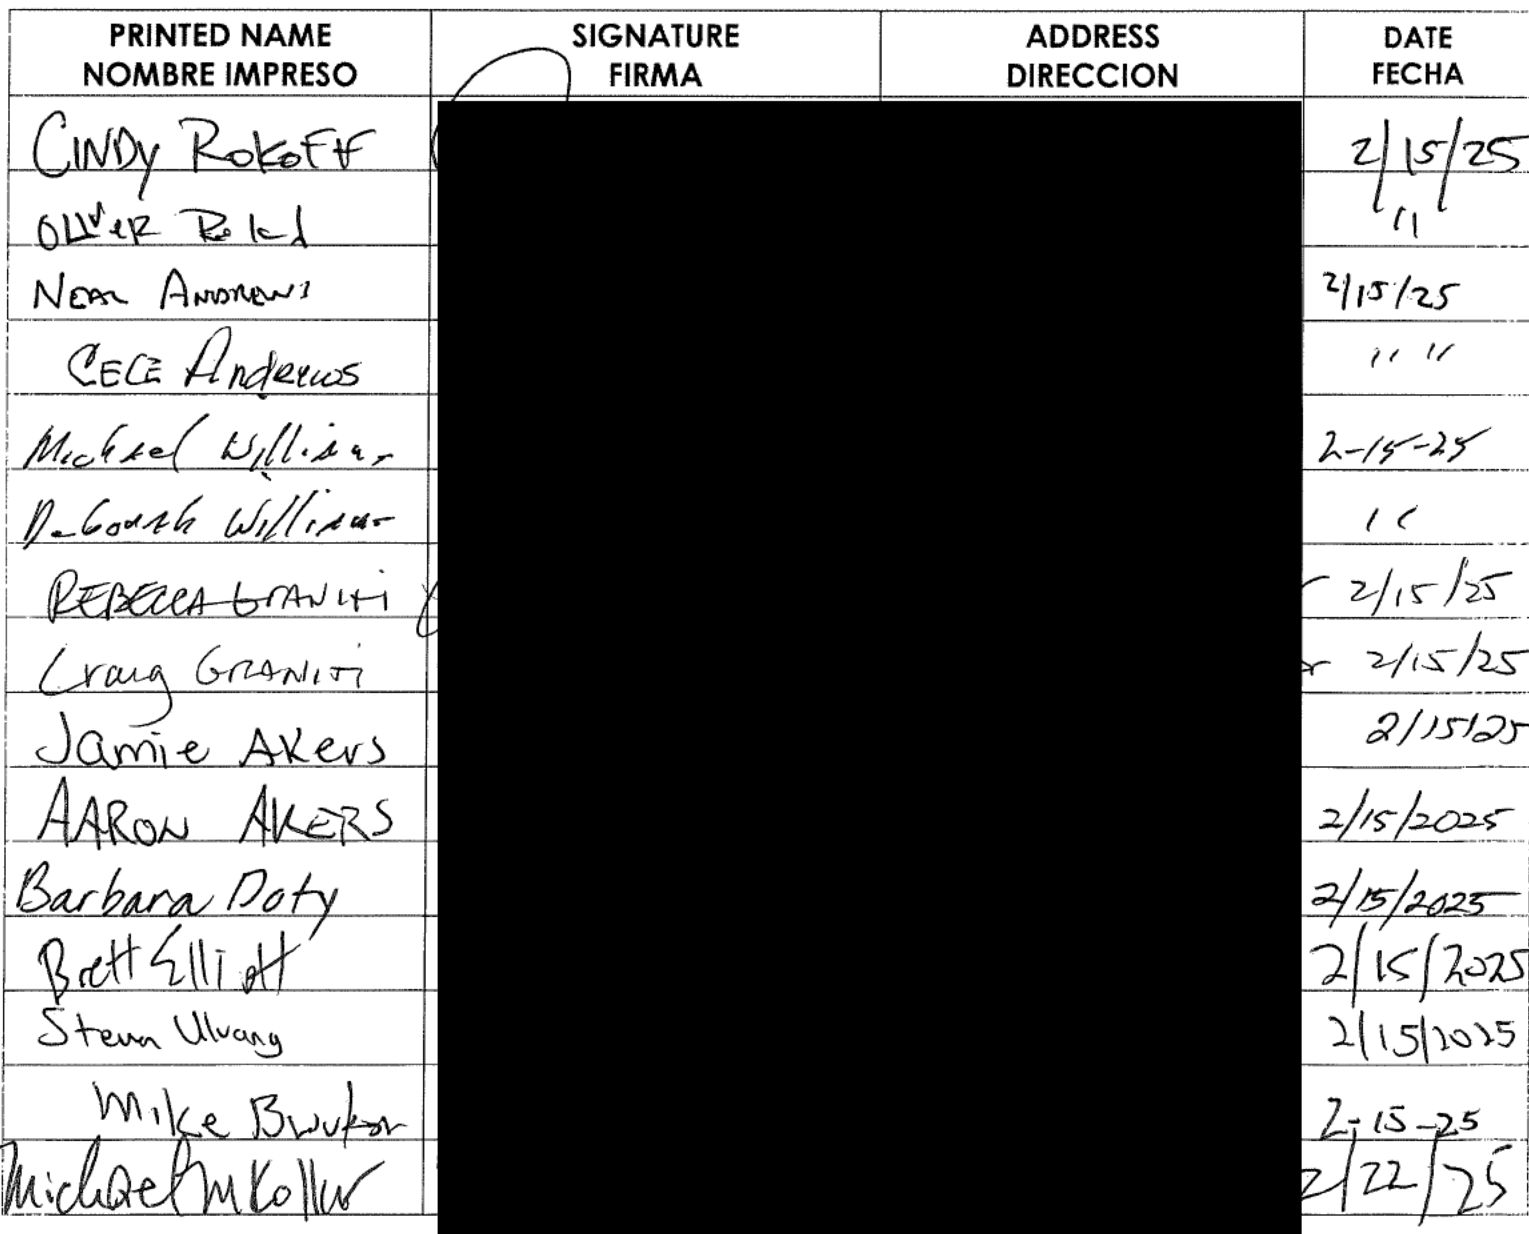 PRINTED NAME SIGNATURE ADDRESS DATE
NOMBRE IMPRESO FIRMA DIRECCION FECHA
CINDY ROKOFF 2/15/25
OLIVER "
NEAL ANDREWS 2/15/25
CECE Andrews " "
Michael Williams 2-15-25
Deborah Williams "
REBECCA GRANITI 2/15/25
Craig GRANITI 2/15/25
Jamie Akers 2/15/25
AARON AKERS 2/15/2025
Barbara Doty 2/15/2025
Brett Elliott 2/15/2025
Steven Ulvang 2/15/2025
Mike 2-15-25
Michael M Koller 2/22/25